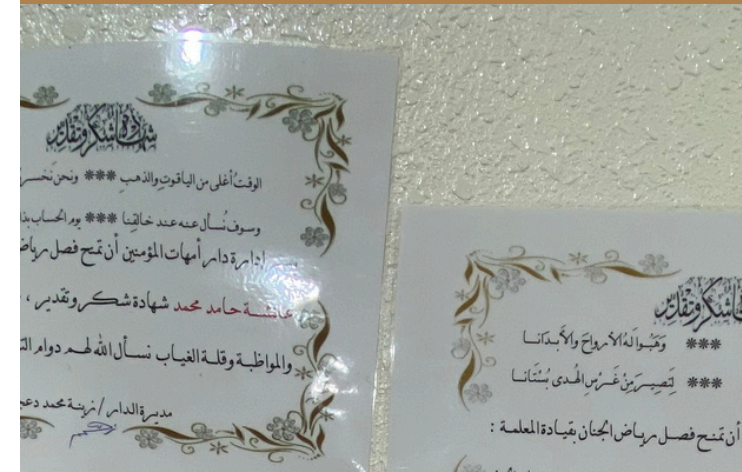 شهادة شكر وتقدير
الوقتُ أغلى من الياقوتِ والذهبِ *** ونحن نخسر
وسوف نُسأل عنه عند خالقِنا *** يوم الحساب
إدارة دار أمهات المؤمنين أن تمنح فصل رياض
عائشة حامد محمد شهادة شكر وتقدير ،
والمواظبة وقلة الغياب نسأل الله لهم دوام
مديرة الدار / زينة محمد
شكر وتقدير
*** وَهَبُوا لَهُ الأرواحَ والأَبدانا
*** لِتَصِيرَ مِنْ غَرْسِ الهُدى بُسْتَانا
أن تمنح فصل رياض الجنان بقيادة المعلمة :